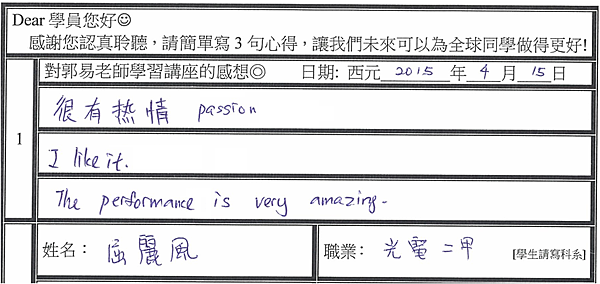 Dear 學員您好☺
感謝您認真聆聽，請簡單寫 3 句心得，讓我們未來可以為全球同學做得更好!
對郭易老師學習講座的感想◎ 日期: 西元 2015 年 4 月 15 日
1
很有热情 passion
I like it.
The performance is very amazing.
姓名： 麗風 職業： 光電 二甲 [學生請寫科系]